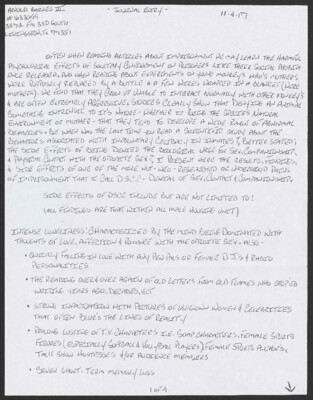 Arnold Barnes III
- "Journal Entry" -
11-4-17
Often when reading articles about imprisonment we may learn the harmful
psychological effects of solitary confinement on prisoners like these
once released, and when reading about experiments on young monkeys who's mothers
were purposely replaced by a bottle & a few weeks wrapped in a blanket (wire
mothers). We find that they grow up unable to interact normally with other monkeys
& are often extremely aggressive. Studies clearly show that denying an animal
something intrinsic to it's nature - whether it being the species natural
environment or mother - that they tend to display a wide range of abnormal
behaviors. But when was the last time you read a scientific study about the
behaviors associated with involuntary celibacy in inmates (better stated;
the side effects of being denied the biological need of sex, companionship,
& physical contact with the opposite sex)? I present here the results, findings,
& side effects of one of the more not-well-researched or understood facets
of imprisonment that I call D.S.C.C. - Denial of Sex, Contact & Companionship
Side effects of DSCC include but are not limited to!
(all examples are that within all male housing unit)
Intense loneliness: Characterized by the mind being dominated with
thoughts of love, affection & romance with the opposite sex. Also -
• Quickly falling in love with any pen pals or female D.J.s & radio
personalities
• The reading over & over again of old letters from old flames who stopped
writing years ago, decades, ect
• Strong infatuation with pictures of unknown women & celebrities
that often blurs the lines of reality
• Prolong lusting of T.V. characters i.e. soap characters, female sports
figures (especially softball & volleyball players) female sports anchors,
talk show hostesses &/or audience members
• Severe short-term memory loss
1 of 4